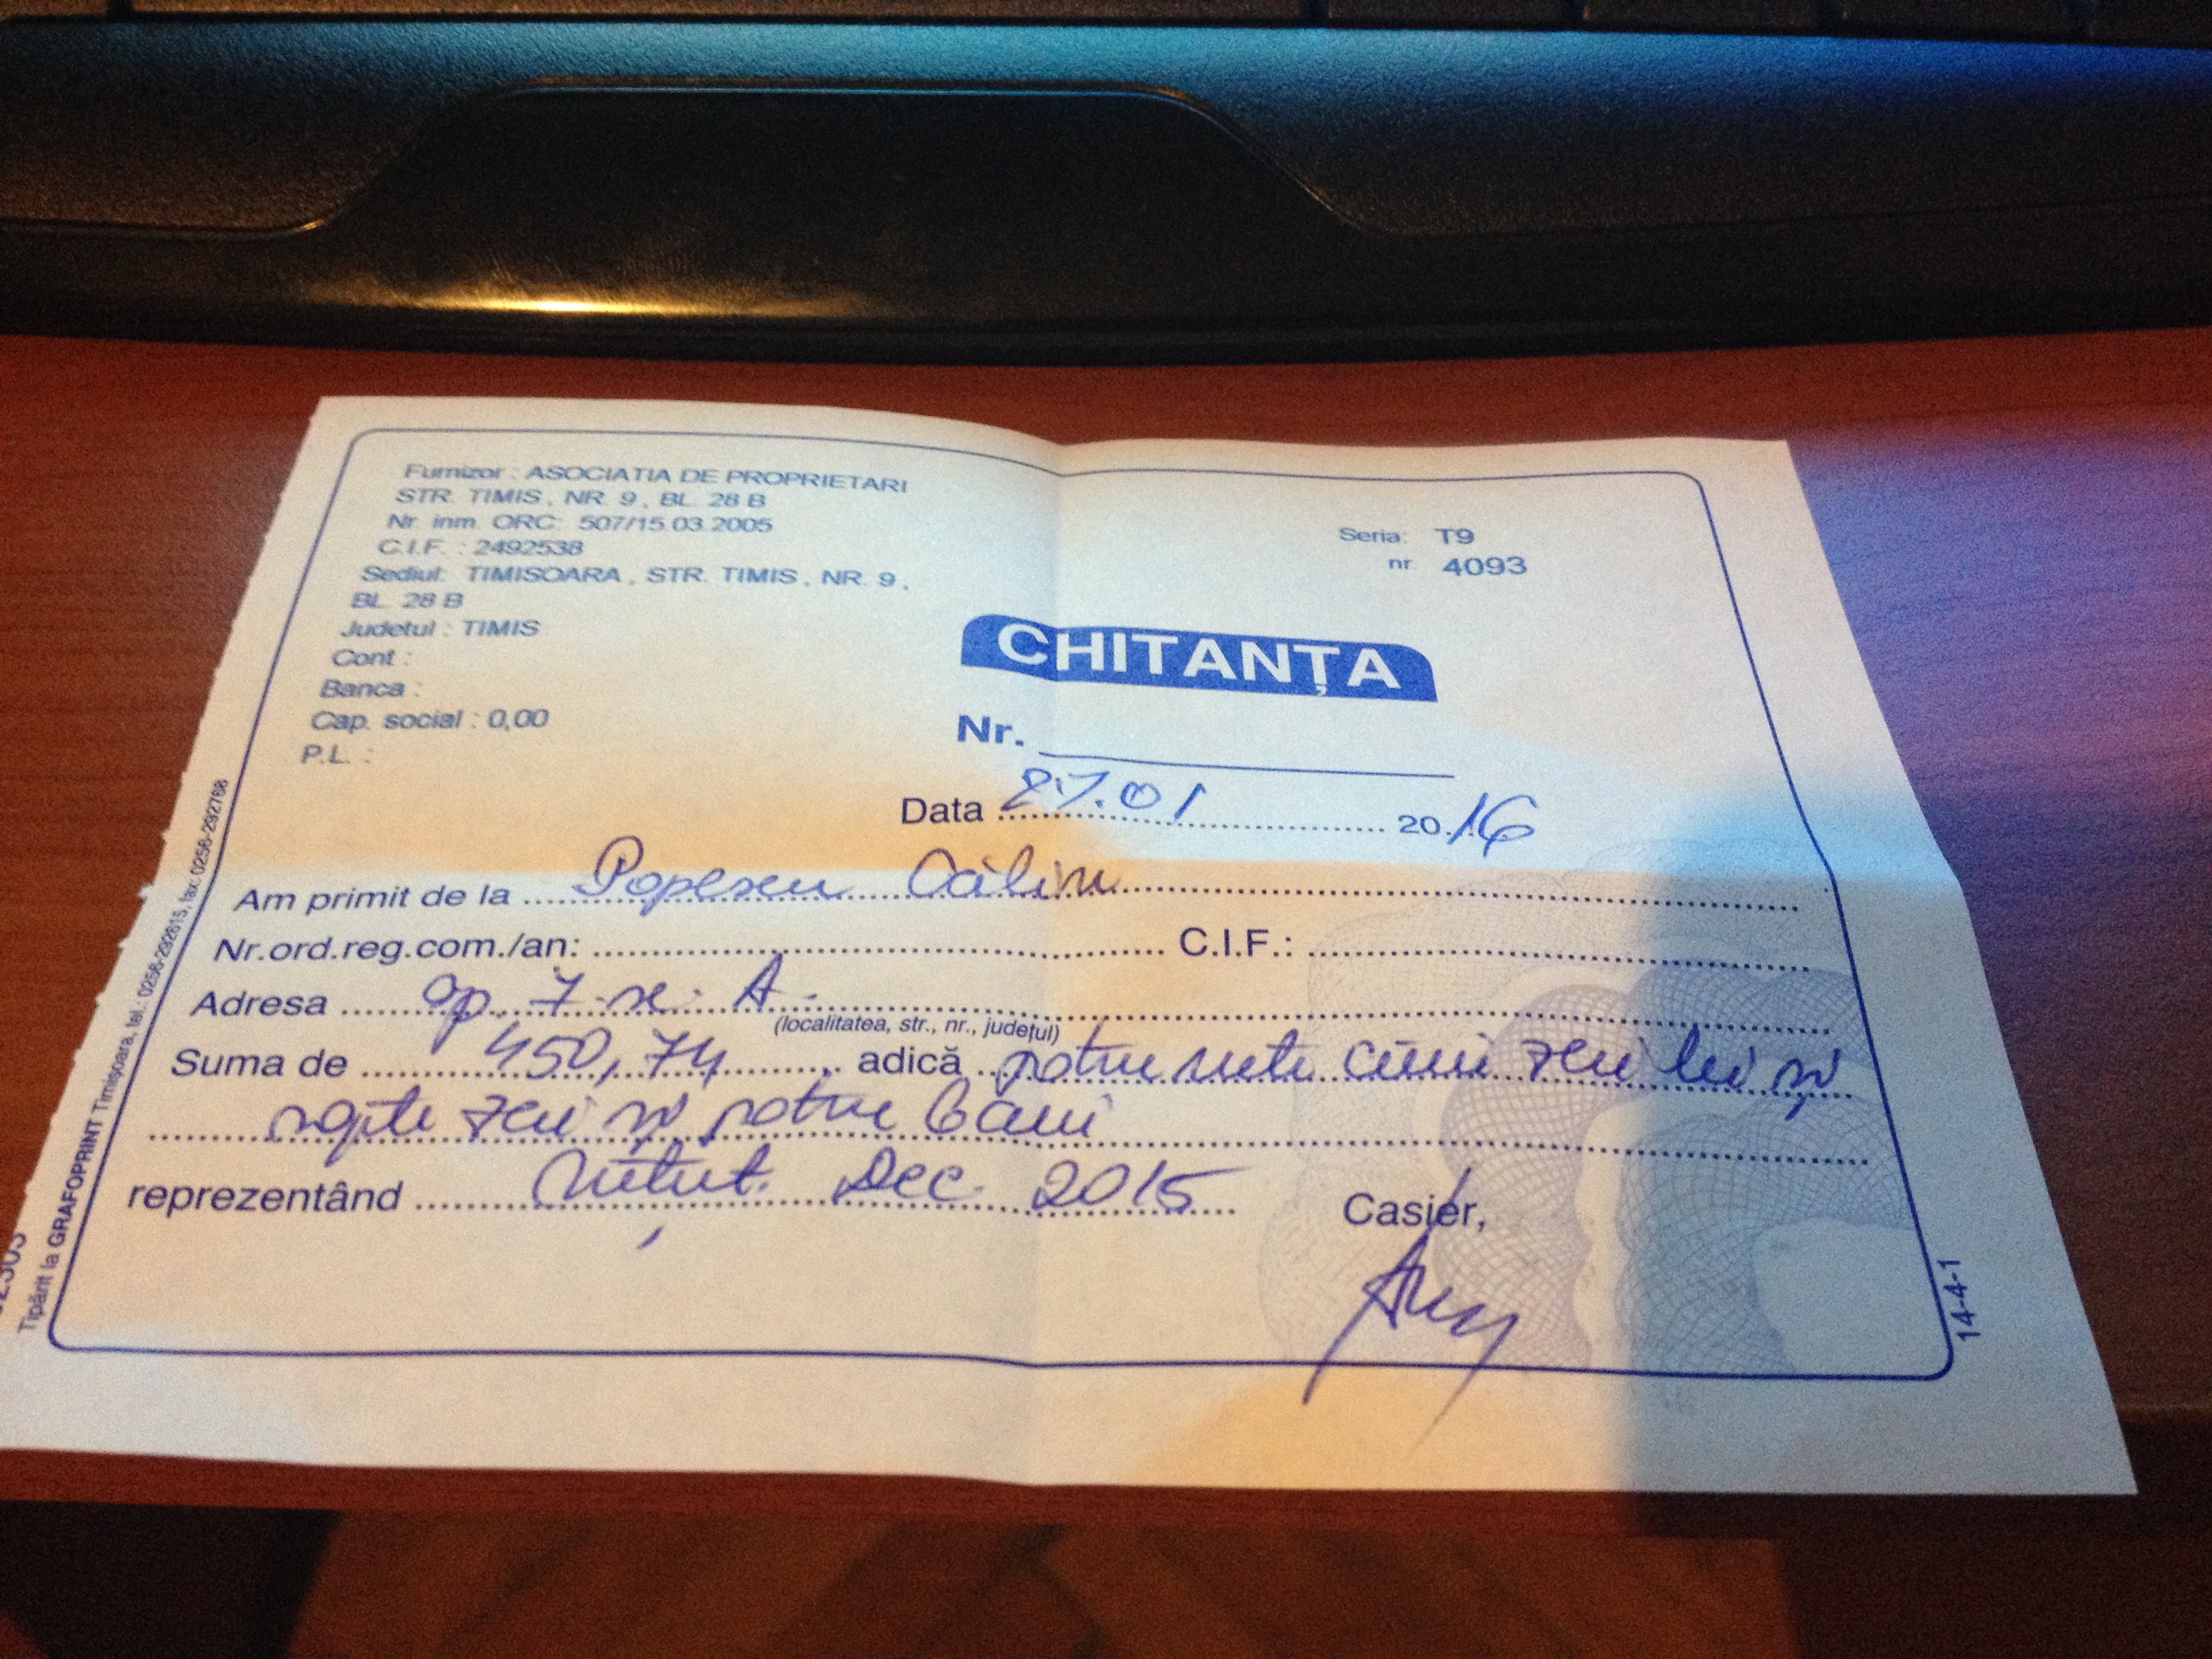 Furnizor : ASOCIATIA DE PROPRIETARI
STR. TIMIS , NR. 9 , BL. 28 B
Nr. inm. ORC: 507/15.03.2005
C.I.F. : 2492538
Sediul: TIMISOARA , STR. TIMIS , NR. 9 ,
BL. 28 B
Judetul : TIMIS
Cont :
Banca :
Cap. social : 0,00
P.L. :
Seria: T9
nr. 4093
CHITANȚA
Nr.
Data 27.01 2016
Am primit de la Popescu Călin
Nr.ord.reg.com./an: C.I.F.:
Adresa ap. 7 sc. A
(localitatea, str., nr., județul)
Suma de 450,74 adică patru sute cinci zeci lei și
șapte zeci și patru bani
reprezentând Dec. 2015
Casier,
Tipărit la GRAFOPRINT Timișoara, tel.: 0256-292615, fax: 0256-292768
14-4-1